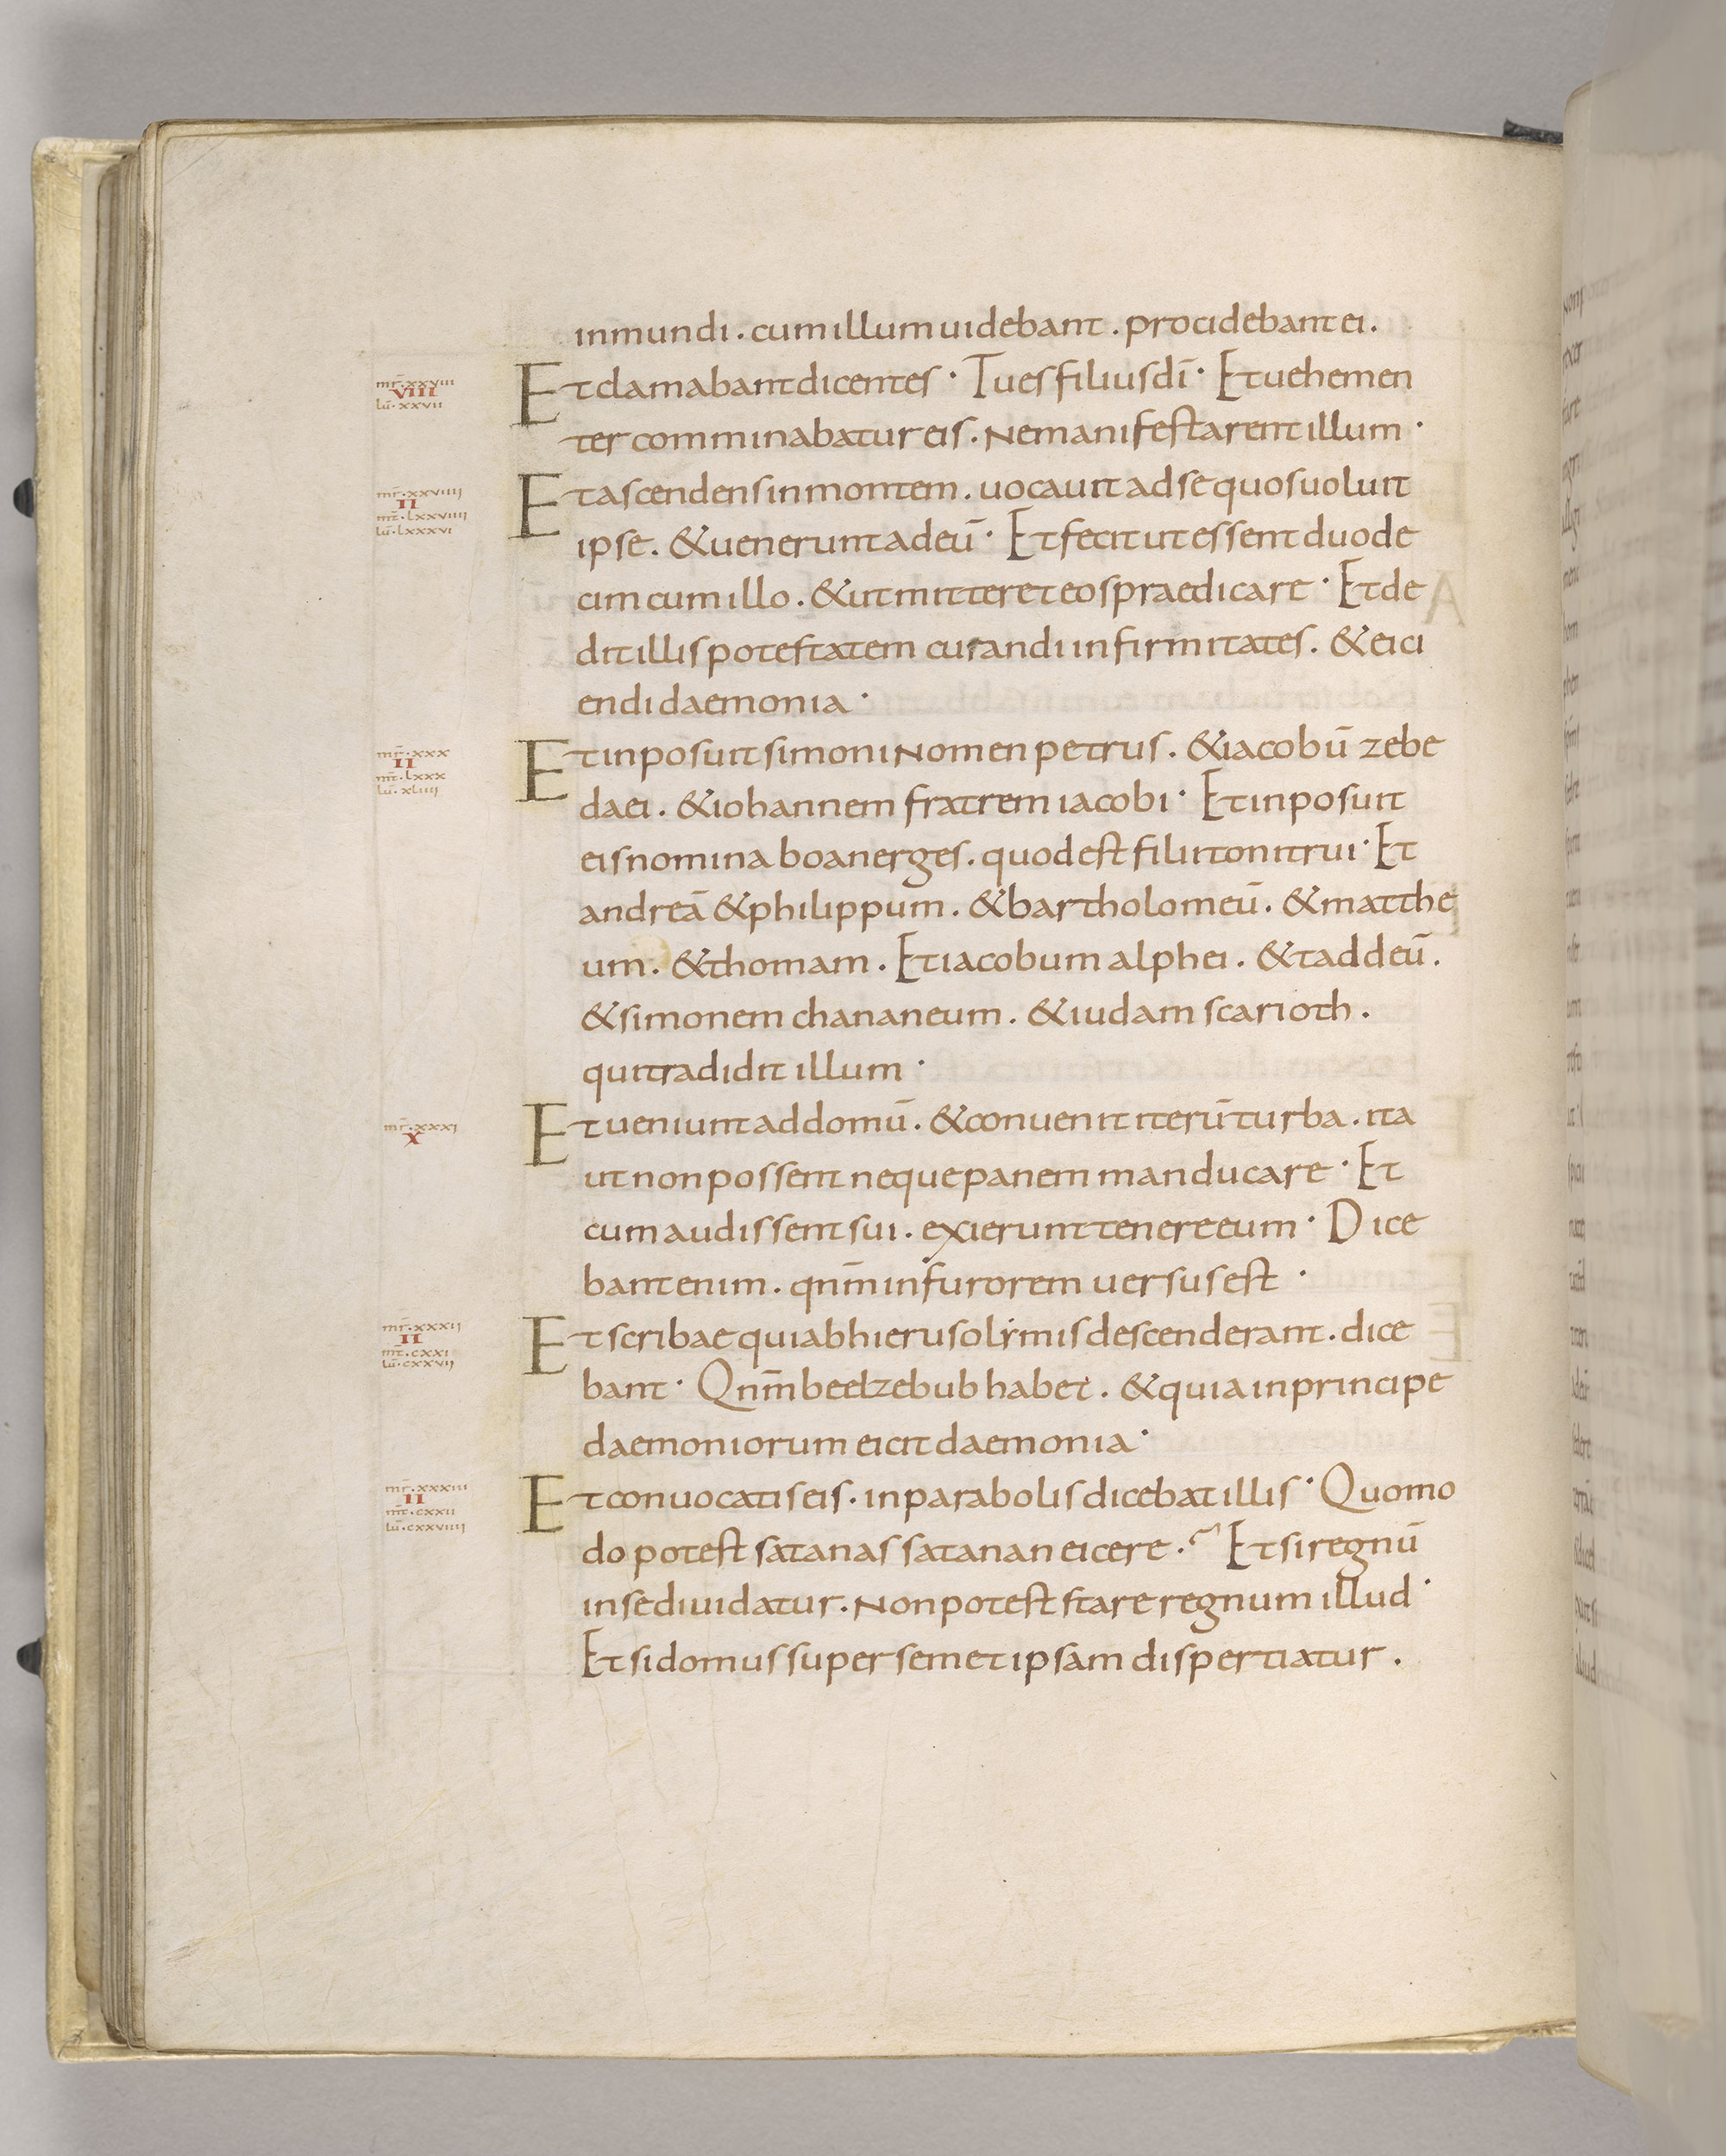 inmundi . cum illum uidebant . procidebant ei .
mr̄ · xxviii
VIII
lū · xxvii
Et clamabant dicentes · Tu es filius dī · Et uehemen
ter comminabatur eis . Ne manifestarent illum ·
mr̄ · xxviiii
II
mt̄ · lxxviiii
lū · lxxxvi
Et ascendens in montem . uocauit ad se quos uoluit
ipse . & uenerunt ad eū · Et fecit ut essent duode
cim cum illo . & ut mitteret eos praedicare · Et de
dit illis potestatem curandi infirmitates . & eici
endi daemonia ·
mr̄ · xxx
II
mt̄ · lxxx
lū · xliiii
Et inposuit simoni Nomen petrus . & iacobū zebe
daei . & iohannem fratrem iacobi · Et inposuit
eis nomina boanerges . quod est filii tonitrui · Et
andreā & philippum . & bartholomeū . & matthe
um . & thomam . Et iacobum alphei . & taddeū .
& simonem chananeum . & iudam scarioth .
qui tradidit illum ·
mr̄ · xxxi
X
Et ueniunt ad domū . & conuenit iterū turba . ita
ut non possent neque panem manducare · Et
cum audissent sui . exierunt tenere eum · Dice
bant enim . qnm̄ in furorem uersus est ·
mr̄ · xxxii
II
mt̄ · cxxi
lū · cxxvii
Et scribae qui ab hierusolẏmis descenderant . dice
bant · Qnm̄ beelzebub habet . & quia in principe
daemoniorum eicit daemonia ·
mr̄ · xxxiii
II
mt̄ · cxxii
lū · cxxviiii
Et conuocatis eis . in parabolis dicebat illis · Quomo
do potest satanas satanan eicere .~ Et si regnū
in se diuidatur . Non potest stare regnum illud ·
Et si domus super semet ipsam dispertiatur .